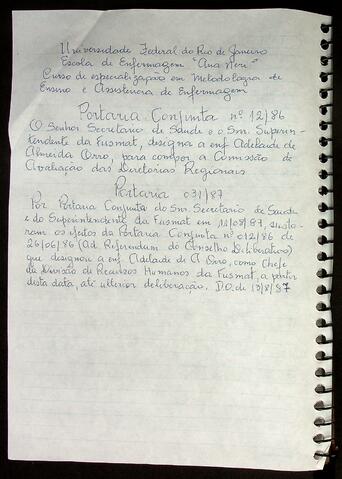 Universidade Federal do Rio de Janeiro
Escola de Enfermagem "Ana Neri"
Curso de especialização em Metodologia de
Ensino e Assistência de Enfermagem
Portaria Conjunta nº 12/86
O Senhor Secretário de Saúde e o Snr. Superin-
tendente da Fusmat, designa a enfª Adelaide de
Almeida Orro, para compor a Comissão de
Avaliação das Diretorias Regionais
Portaria 031/87
Por Portaria Conjunta do Snr. Secretário de Saúde
e do Superintendente da Fusmat em 11/08/87,
os efeitos da Portaria Conjunta nº 012/86 de
26/06/86 (Ad Referendum do Conselho Deliberativo)
que designou a enfª Adelaide de A Orro, como Chefe
da Divisão de Recursos Humanos da Fusmat, a partir
desta data, até ulterior deliberação. D.O. de 13/8/87